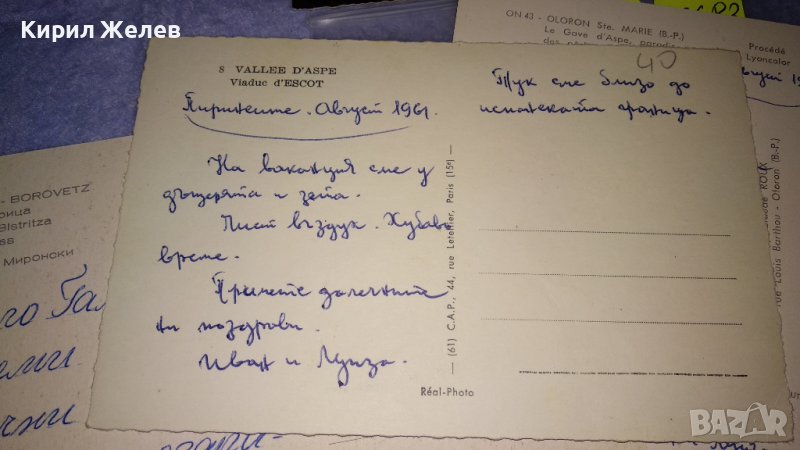 Кирил Желев
ON 43 - OLORON Ste. MARIE (B.-P.)
Le Gave d'Aspe, paradis
des pê
Procédé
Lyoncolor
40
8 VALLEE D'ASPE
Viaduc d'ESCOT
Пиринеите. Август 1961.
На ваканция сме у
дъщерята и зетя.
Чист въздух. Хубаво
време.
Приемете далечните
ни поздрави.
Иван и Луиза.
Тук сме близо до
испанската граница.
(61) C.A.P., 44, rue Letellier, Paris (15e)
Réal-Photo
- BOROVETZ
рица
Bistritza
ss
Миронски
го
ROUX
rue Louis Barthou - Oloron (B.-P.)
BAZAR
bg